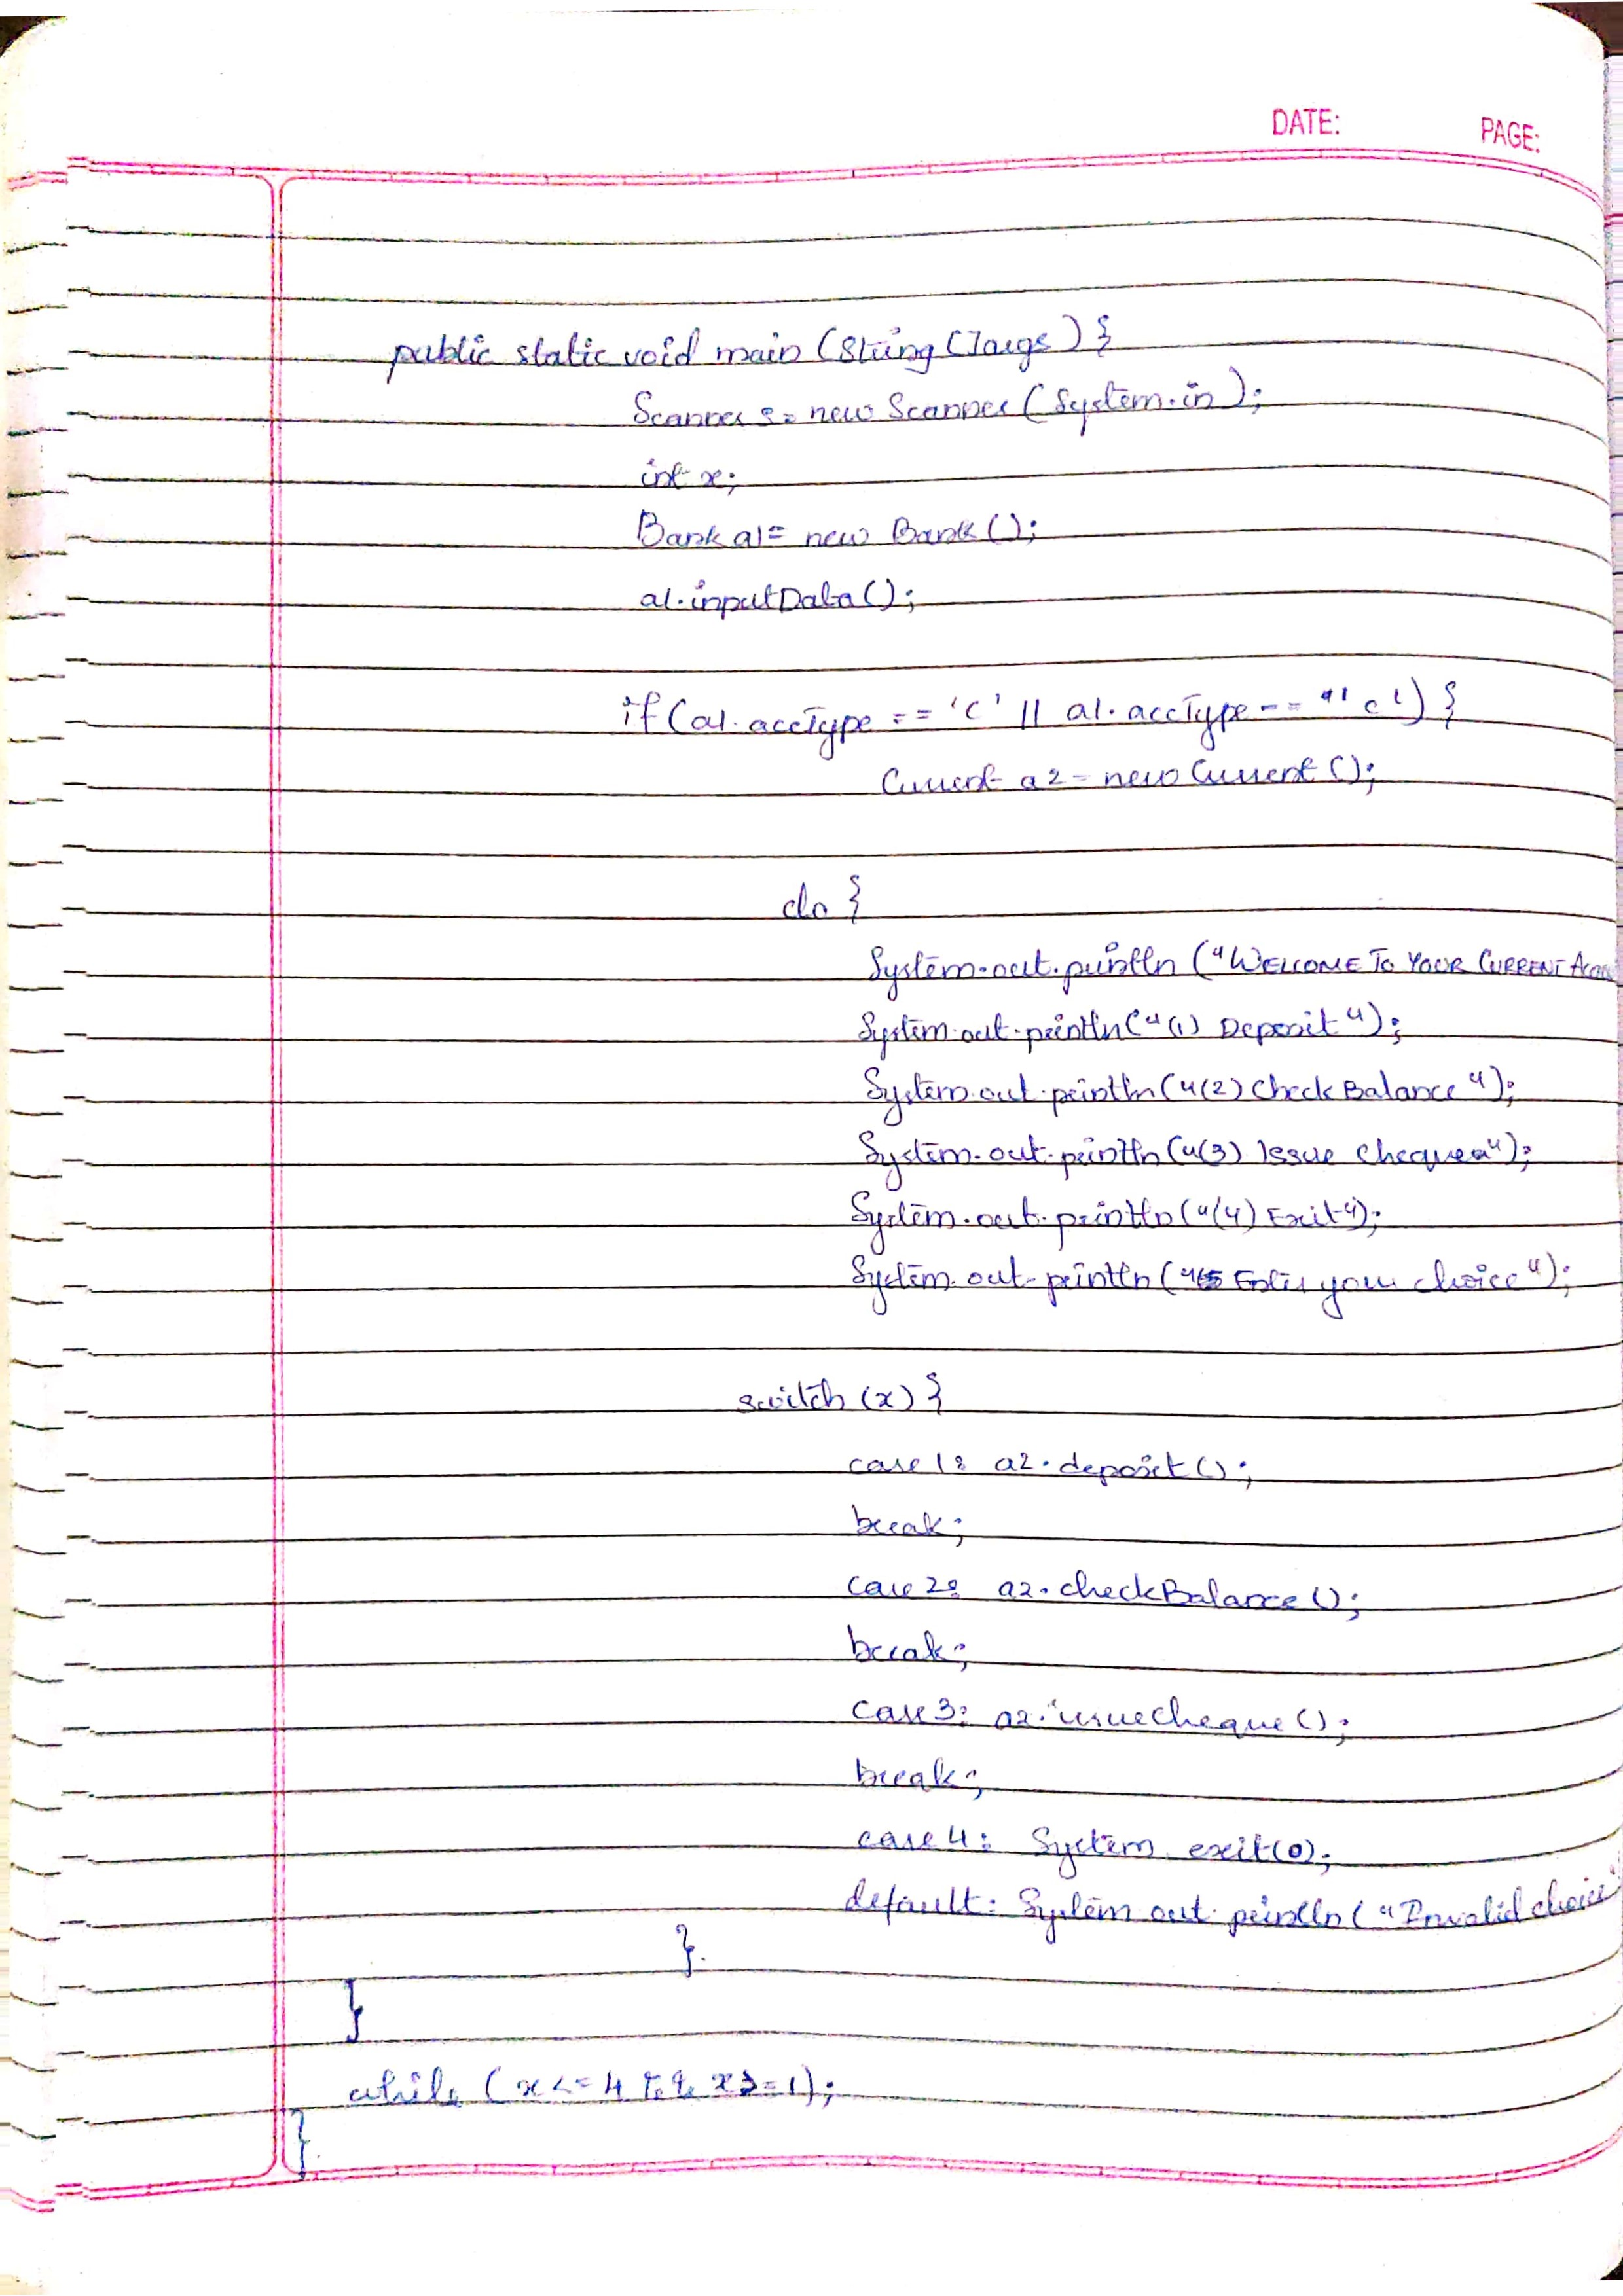 DATE: PAGE:
public static void main (String []args) {
Scanner s= new Scanner (System.in);
int x;
Bank a1= new Bank ();
a1.inputData ();
if (a1.accType == 'C' || a1.accType == 'c') {
Current a2 = new Current ();
do {
System.out.println ("WELCOME TO YOUR CURRENT
System.out.println ("(1) Deposit");
System.out.println ("(2) Check Balance");
System.out.println ("(3) Issue Cheque");
System.out.println ("(4) Exit");
System.out.println (" Enter your choice");
switch (x) {
case 1: a2.deposit ();
break;
case 2: a2.checkBalance ();
break;
case 3: a2.issueCheque ();
break;
case 4: System.exit(0);
default: System.out.println ("Invalid choice"
}
}
while (x <= 4 && x >= 1);
}